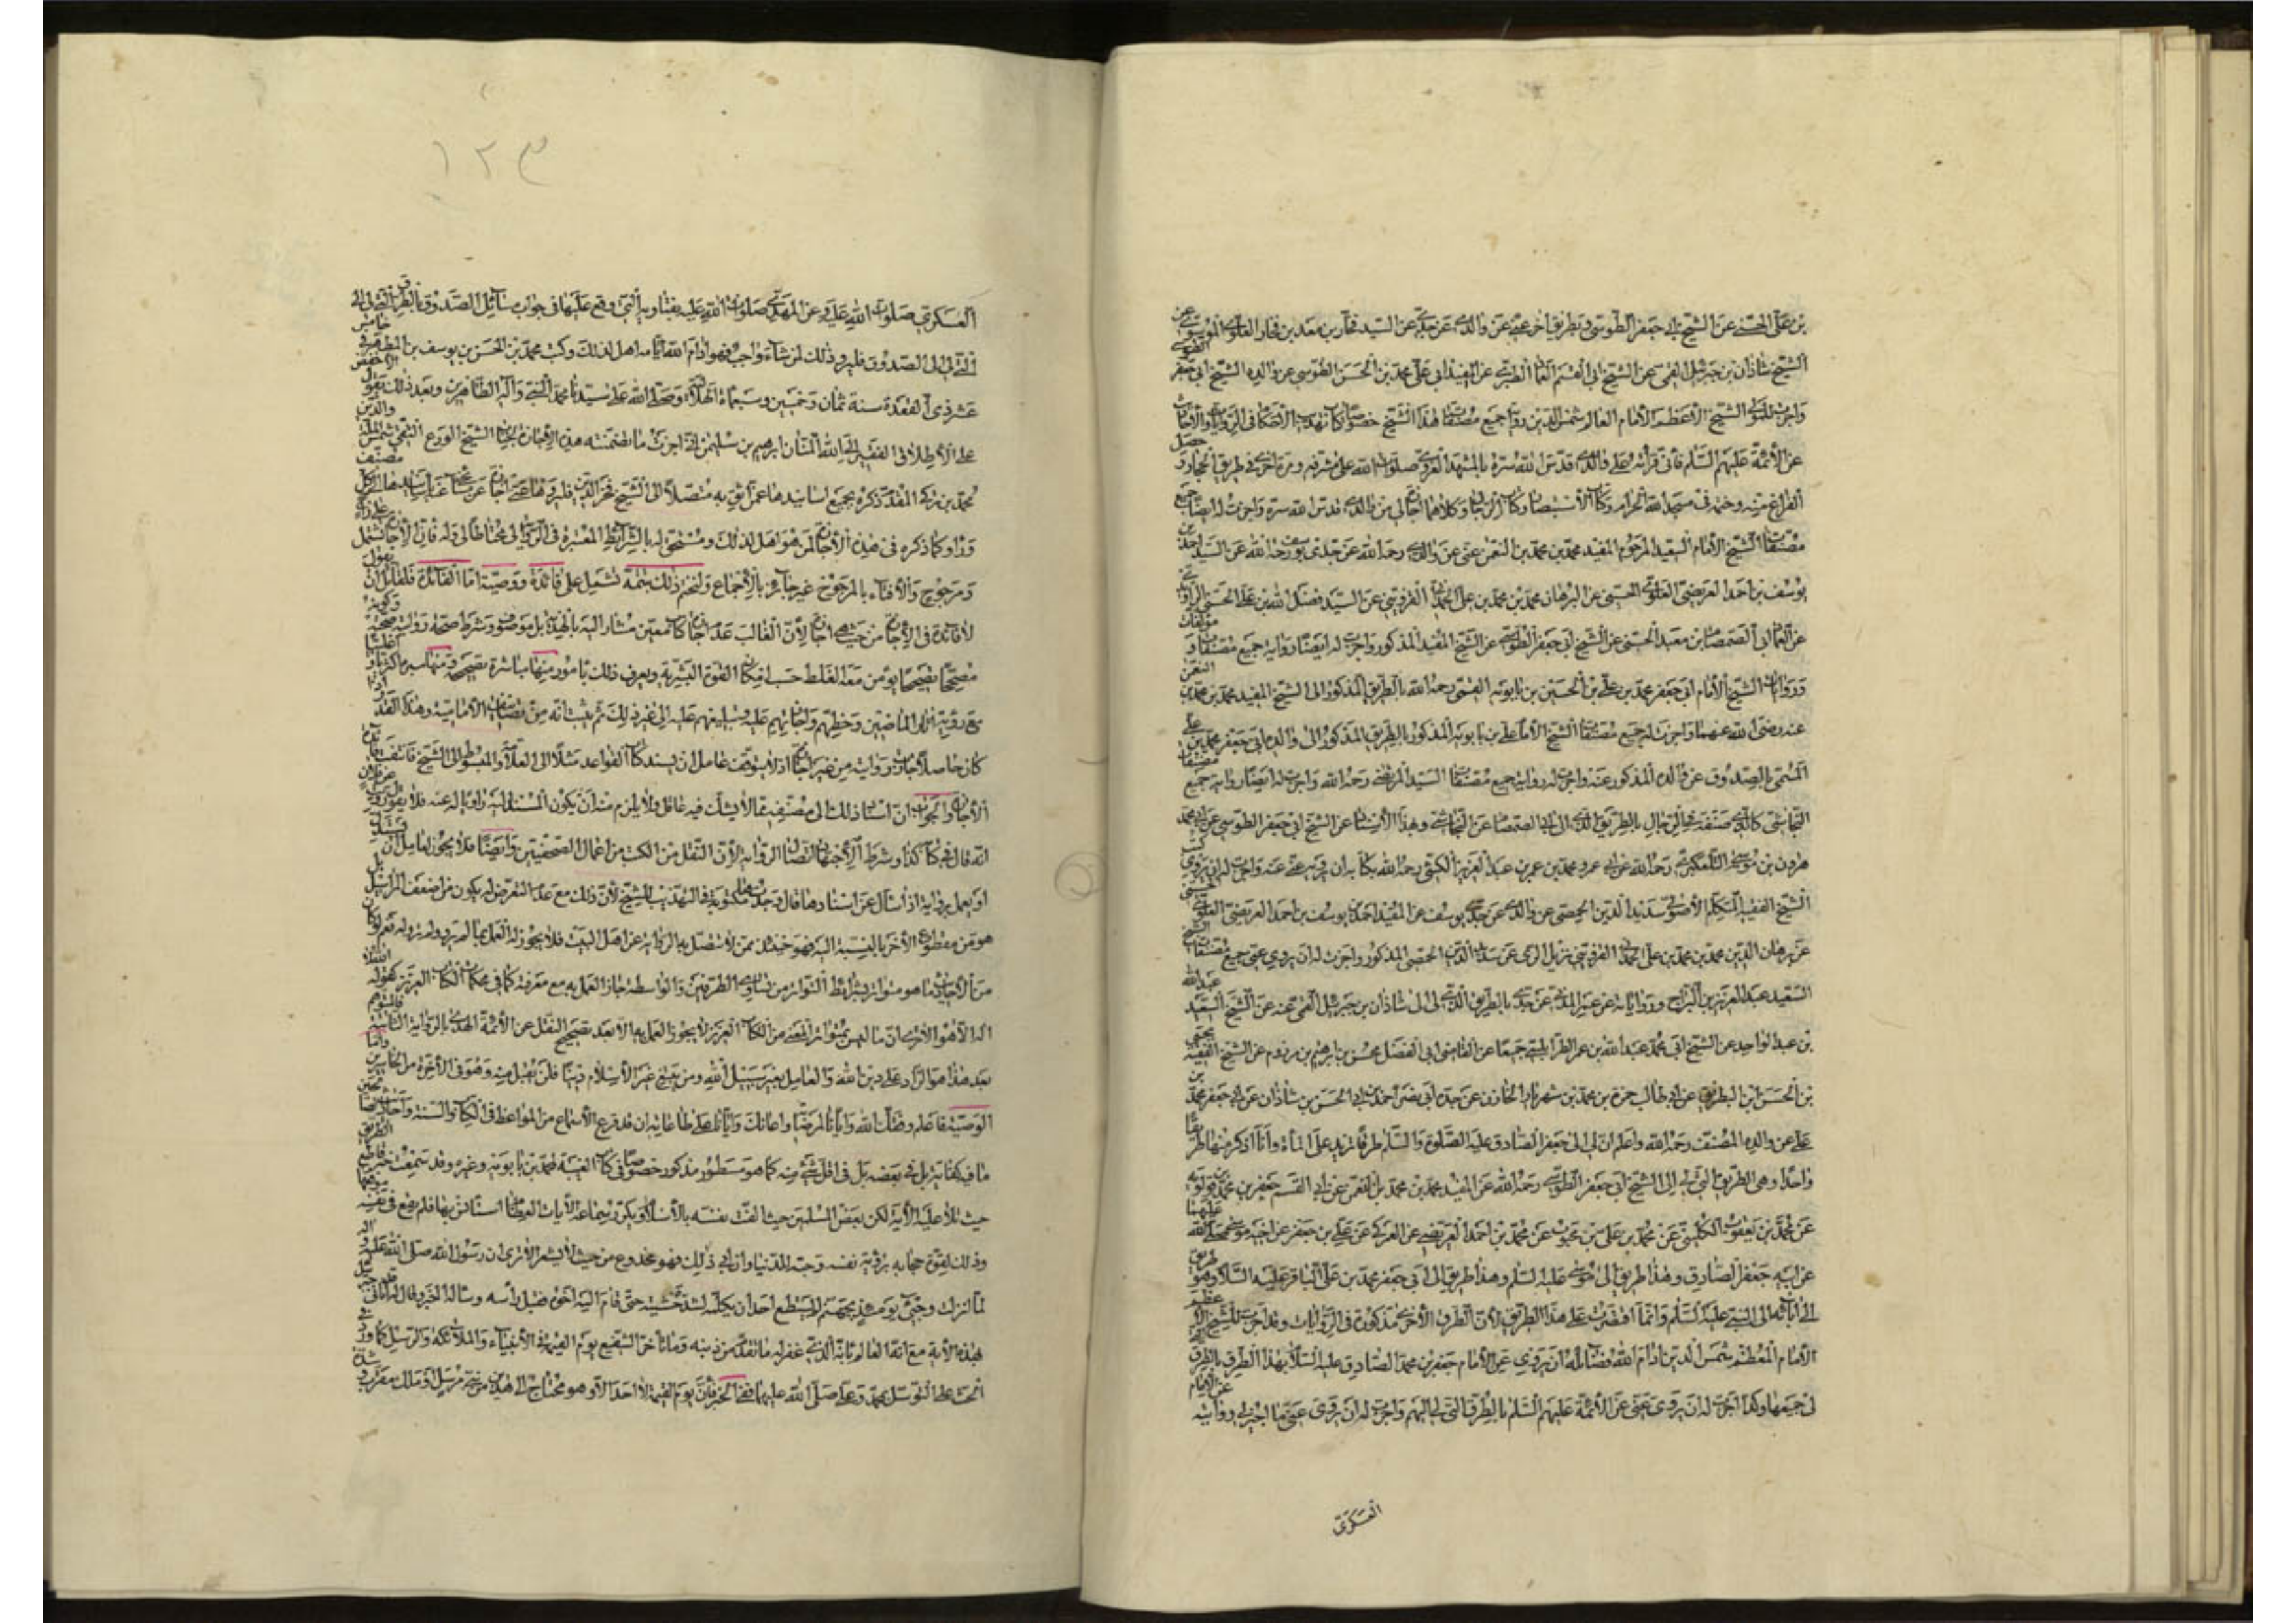 بن علي الحسني عن الشيخ أبي جعفر الطوسي وبطريق آخر عني عن والدي عن جدي عن السيد فخار بن معد بن فخار العلوي الموسوي عن
الشيخ شاذان بن جبرئيل القمي عن الشيخ أبي القسم العماد الطبري عن المفيد أبي علي محمد بن الحسن الطوسي عن والده الشيخ أبي جعفر الطوسي
واجزت للمولى الشيخ الأعظم الإمام العالم شمس الدين رواية جميع مصنفات هذا الشيخ خصوصا كتاب تهذيب الأحكام في الروايات
عن الأئمة عليهم السلم فاني قرأته على والدي قدس الله سره بالمشهد الغروي صلوات الله على مشرفه ومرة أخرى في طريق الحجاز وحصل
الفراغ منه وختمه في مسجد الله الحرام وكتاب الاستبصار وكتاب الرجال وكلاهما اجاز لي من والدي قدس الله سره واجزت له ايضا جميع
مصنفات الشيخ الإمام السعيد المرحوم المفيد محمد بن محمد بن النعمن عني عن والدي رحمه الله عن جدي يوسف رحمه الله عن السيد احمد بن
يوسف بن احمد العريضي العلوي الحسيني عن البرهان محمد بن محمد بن علي الحمداني القزويني عن السيد فضل الله بن علي الحسني الراوندي
عن العماد أبي الصمصام بن معبد الحسني عن الشيخ أبي جعفر الطوسي عن الشيخ المفيد المذكور واجزت له ايضا رواية جميع مصنفات و مؤلفات
وروايات الشيخ الإمام أبي جعفر محمد بن علي بن الحسين بن بابويه القمي رحمه الله بالطريق المذكور الى الشيخ المفيد محمد بن محمد بن النعمن
عنه رضي الله عنهما واجزت له جميع مصنفات الشيخ الإمام علي بن بابويه المذكور بالطريق المذكور الى والده أبي جعفر محمد بن علي
المسمى بالصدوق عن والده المذكور عنه واجزت له رواية جميع مصنفات السيد المرتضى رحمه الله واجزت له ايضا رواية جميع مصنفات
النجاشي كتاب صنفه في الرجال بالطريق الى أبي الصمصام عن النجاشي وهذا الاسناد عن الشيخ أبي جعفر الطوسي عن أبي محمد
هرون بن موسى التلعكبري رحمه الله عن أبي عمرو محمد بن عمر بن عبد العزيز الكشي رحمه الله بكتابه ان يرويه عني عنه واجزت له ان يروي كتب
الشيخ الفقيه المتكلم الأصولي سديد الدين الحمصي عن والدي عن جدي يوسف عن المفيد احمد بن يوسف بن احمد العريضي العلوي الحسيني
عن برهان الدين محمد بن محمد بن علي الحمداني القزويني نزيل الري عن سديد الدين الحمصي المذكور واجزت له ان يروي عني جميع مصنفات الشيخ
السعيد عبد العزيز بن البراج ورواياته عن والدي عن جدي بالطريق الذي لي الى شاذان بن جبرئيل القمي عنه عن الشيخ السعيد عبد الله
بن عبد الواحد عن الشيخ أبي محمد عبد الله بن عمر الطرابلسي جميعا عن القاضي عن الشيخ الفقيه يحيى
بن الحسن بن البطريق عن أبي طالب حمزة بن محمد بن شهريار الخازن عن جده أبي جعفر محمد بن
علي عن والده المصنف رحمه الله واعلم ان لي الى جعفر الصادق عليه الصلوة والسلم طرقا تزيد على المأة وأنا اذكر منها طريقا
واحدا وهي الطريق التي لي الى الشيخ أبي جعفر الطوسي رحمه الله عن المفيد محمد بن محمد بن النعمن عن أبي القسم جعفر بن محمد بن قولويه
عن محمد بن يعقوب الكليني عن محمد بن علي بن محبوب عن محمد بن احمد العريضي عن العمركي عن علي بن جعفر عن اخيه موسى عليهما
عن ابيه جعفر الصادق وهذا طريق الى موسى عليه السلم وهذا طريق الى أبي جعفر محمد بن علي الباقر عليه السلام وهو طريق
الى آبائه الى النبي عليه السلم وانما اقتصرت على هذا الطريق لأن الطرق الأخرى مذكورة في الروايات وقد اجزت للشيخ
الإمام المعظم شمس الدين ادام الله فضائله أن يروي عن الإمام جعفر بن محمد الصادق عليه السلام بهذا الطريق بالطرق
لي جميعها وكذا اجزت له ان يروي عني عن الأئمة عليهم السلم بالطرق التي لي اليهم واجزت له ان يروي عني ما اجيز لي روايته عن الامام
العسكري
١٢٣
العسكري صلوات الله عليه وعن المهدي صلوات الله عليه بفتاويه التي وقع عليها في جواب مسائل الصدوق بالطريق المتصل لي
الى الصدوق فليرو ذلك لمن شاء واحب فهو ادام الله ايامه اهل لذلك وكتب محمد بن الحسن بن يوسف بن المطهر في خامس
عشر ذي القعدة سنة ثمان وخمسين وسبعمائة الهلالية وصلى الله على سيدنا محمد النبي وآله الطاهرين وبعد ذلك يقول
على الاطلاق الفقير الى الله المنان ابرهيم بن سليمن اني اجزت ما تضمنته هذه الاجازة الشيخ الورع التقي شمس الدين
محمد بن تركي المقدم ذكره بجميع اسانيدها عمن اثق به متصلا الى الشيخ فخر الدين فليروها عني
وراو كما ذكره في هذه الاجازة لمن هو اهل لذلك ومستحق له بالشرائط المعتبرة في الرواية محتاطا لي وله فان الاجازة تشتمل على راجح
ومرجوح والافتاء بالمرجوح غير جائز بالاجماع ولنختم ذلك بتتمة تشتمل على فائدة ووصية اما الفائدة فلقائل ان يقول
لا فائدة في الاجازة من حيث هي اجازة لأن الغالب عدم اجازة كتاب معين مشار اليه بالهذية بل موصوف وشرط صحة روايته صحته وكونه
مصححا تصحيحا يؤمن معه الغلط حسب امكان القوة البشرية ويعرف ذلك بامور منها مباشرة تصحيحه ومنها
مع رؤية آثار الماضين وخطهم واجازاتهم عليه وتبليغهم عليه الى غير ذلك ثم يثبت انه من تصانيف الامامية وهذا القدر
كان حاصلا جازت روايته من غير اجازة اذ لا يتوقف عاقل ان يسند كتاب القواعد مثلا الى العلامة والمبسوط الى الشيخ فانتفت فائدة
الاجازة والجواب ان اسناد ذلك الى مصنفيه مما لا يشك فيه عاقل ولا يلزم منه أن يكون المستند اليه راويا له عنه
انه قال في كتابه كذا وشرط الاجتهاد اتصال الرواية لأن النقل من الكتب من اعمال الصحفيين وايضا فلا يجوز لعامل ان يستدل
او يعمل برواية اذا سأل عن اسنادها قال وجدتها مكتوبة في التهذيب للشيخ لأن ذلك مع عدم التعرض له يكون من اضعف المراسيل بل
هو من مقطوع الآخر بالنسبة اليه فهو حينئذ ممن لا تتصل به الرواية عن اهل البيت فلا يجوز له العمل بما لم يروه نعم لو كان
من الاحاديث ما هو متواتر بشرائط التواتر من تساوي الطرفين والواسطة جاز العمل به مع معرفته كما في محكمات الكتاب العزيز كقوله
اله الا هو الا ترى ان ما ليس بمتواتر المعنى من الكتاب العزيز لا يجوز العمل به الا بعد تصحيح النقل عن الأئمة الهدى بالرواية الثابتة
بعد هذا هو الراد على دين الله والعامل بغير سبيل الله ومن يبتغ غير الاسلام دينا فلن يقبل منه وهو في الآخرة من الخاسرين وأما
الوصية فاعلم وفقك الله وايانا لمرضاته واعانك وايانا على طاعاته ان قد قرع الاسماع من المواعظ في الكتاب والسنة
ما فيه كفاية بل في بعضه بل في اقل شيء منه كما هو مسطور مذكور خصوصا في كتاب الغيبة لمحمد بن بابويه وغيره وقد سمعت
حيث تلا عليه الآية لكن بعض المسلمين حيث الفت نفسه بالاسلام وتكررت سماعه الآيات العظام استأنس بها فلم يقع في نفسه
وذلك لقوة حجابه برؤية نفسه وحبه للدنيا وان ابى ذلك فهو مخدوع من حيث لا يشعر الا ترى ان رسول الله صلى الله عليه وآله
لما نزلت وجيء يومئذ بجهنم لم يستطع احد ان يكلمه لشدة خشيته حتى قام اليه اخي فقبل رأسه وسأله الخبر وقال له اتاني جبرئيل
بهذه الآية مع انه العالم بانه الذي غفر له ما تقدم من ذنبه وما تأخر الشفيع يوم القيمة في الأنبياء والملائكة والرسل كما ورد
الحث على التوسل بمحمد وعلي صلى الله عليهما ففي الخبر فان يوم القيمة لا احد الا وهو محتاج الى هذين من نبي مرسل وملك مقرب